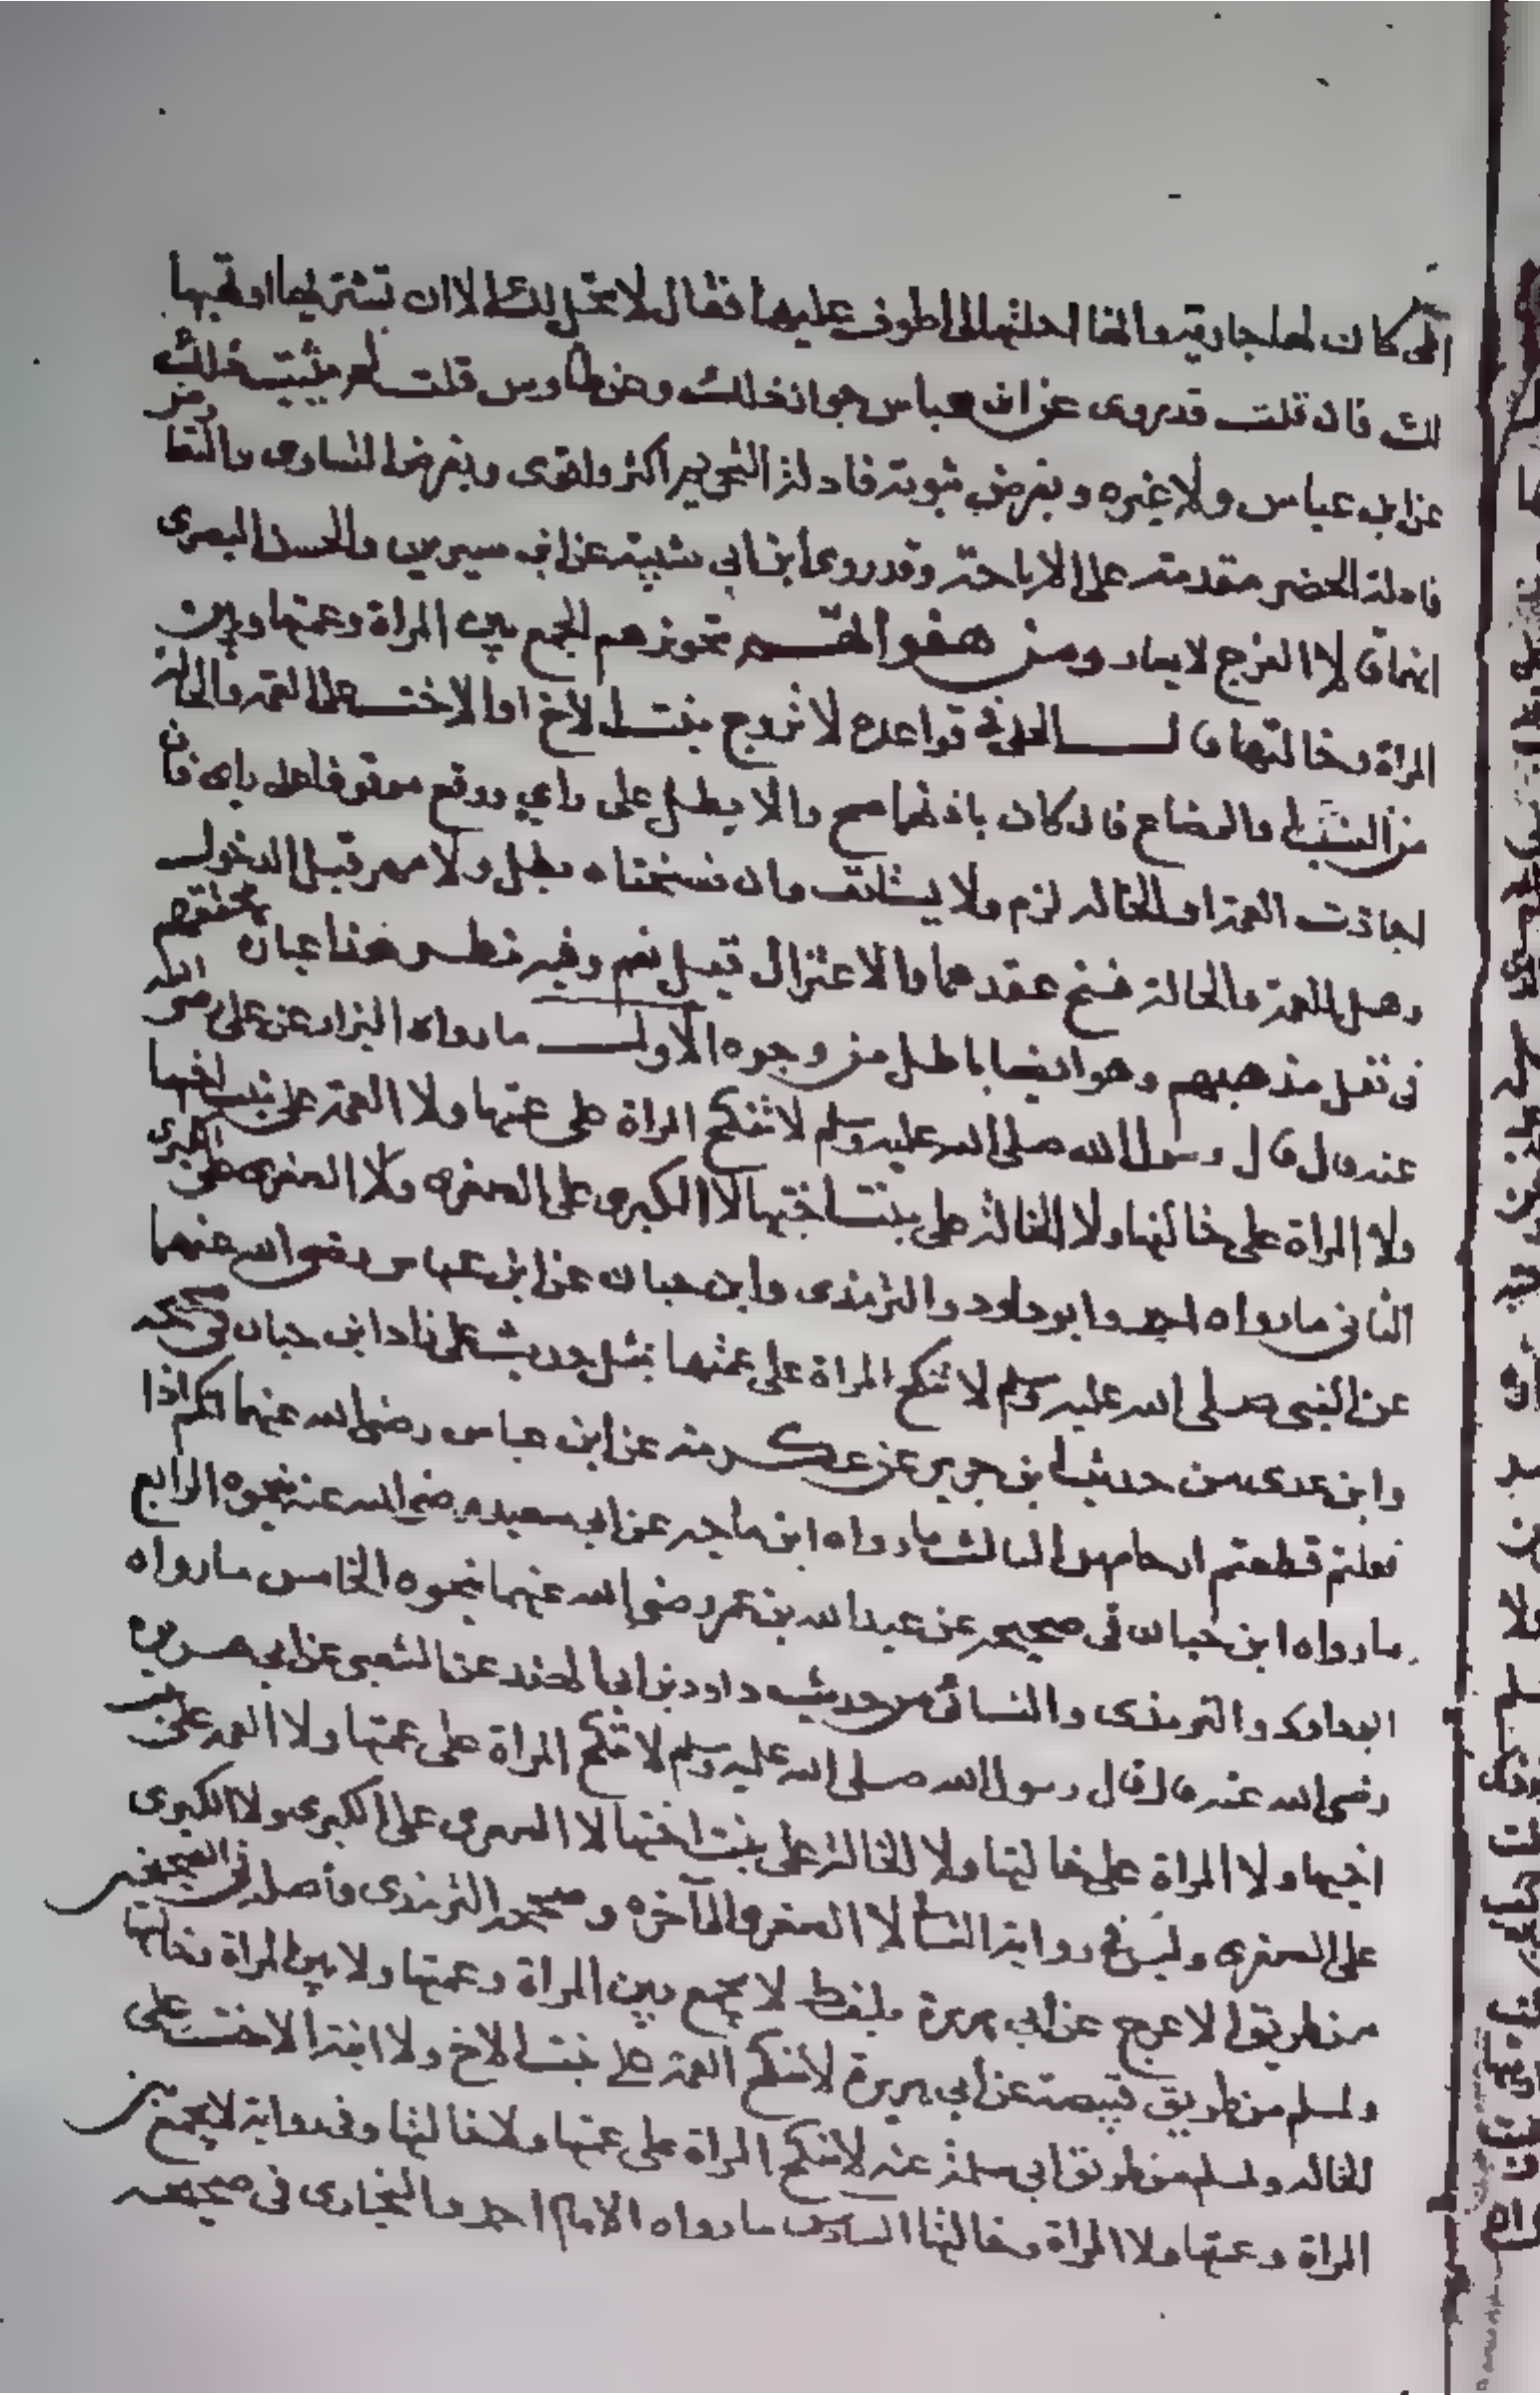 امى كان لها جارية وانها احلتها لى اطوف عليها فقال لا تحل لك الا ان تشتريها او تهبها
لك فان قلت قد روى عن ابن عباس جواز ذلك وعن طاوس قلت لم يثبت ذلك
عن ابن عباس ولا غيره وبفرض ثبوته فادلة التحريم اكثر واقوى وبفرض التساوى والتقا
فادلة الحضر مقدمة على الاباحة وقد روى ابن ابي شيبة عن ابن سيرين والحسن البصرى
انهما قالا الفرج لا يعار ومن هفواتهم تجويزهم الجمع بين المراة وعمتها وبين
المراة وخالتها قال الحلى فى قواعده لا تزوج بنت الاخ او الاخت على العمة والخالة
من النسب والرضاع فان كان باذنهما صح والا بطل على راي ووقع موقوفا على راى فان
اجازت العمة او الخالة لزم ولا يستانف وان فسختاه بطل ولا مهر قبل الدخول
وهل للعمة والخالة فسخ عقدهما والاعتزال قيل نعم وفيه نظر هذا عبارة محققهم
فى نقل مذهبهم وهو ايضا باطل من وجوه الاول ما رواه البزار عن على رضى الله
عنه قال قال رسول الله صلى الله عليه وسلم لا تنكح المراة على عمتها ولا العمة على بنت اخيها
ولا المراة على خالتها ولا الخالة على بنت اختها لا الكبرى على الصغرى ولا الصغرى على الكبرى
الثانى ما رواه احمد وابو داود والترمذى وابن حبان عن ابن عباس رضى الله عنهما
عن النبى صلى الله عليه وسلم لا تنكح المراة على عمتها بمثل حديث على زاد ابن حبان فى صحيحه
وابن عدى من حديث ابن جرير عن عكرمة عن ابن عباس رضى الله عنهما انكم اذا
فعلتم قطعتم ارحامهن الثالث ما رواه ابن ماجه عن ابى سعيد رضى الله عنه نحوه الرابع
ما رواه ابن حبان فى صحيحه عن عبد الله بن عمر رضى الله عنهما نحوه الخامس ما رواه
ابو داود والترمذى والنسائى من حديث داود بن ابى هند عن الشعبى عن ابى هريرة
رضى الله عنه قال قال رسول الله صلى الله عليه وسلم لا تنكح المراة على عمتها ولا العمة على بنت
اخيها ولا المراة على خالتها ولا الخالة على بنت اختها لا الصغرى على الكبرى ولا الكبرى
على الصغرى وليس فى رواية النسا لا الصغرى الى آخره وصححه الترمذى وأصله فى الصحيحين
من طريق الاعرج عن أبي هريرة بلفظ لا يجمع بين المراة وعمتها ولا بين المراة وخالتها
ولمسلم من طريق قبيصة عن ابي هريرة لا تنكح العمة على بنت الاخ ولا ابنة الاخت على
الخالة ولمسلم من طريق ابى سلمة عنه لا تنكح المراة على عمتها ولا خالتها وفى رواية لا يجمع بين
المراة وعمتها ولا المراة وخالتها السادس ما رواه الامام احمد والبخارى فى صحيحه